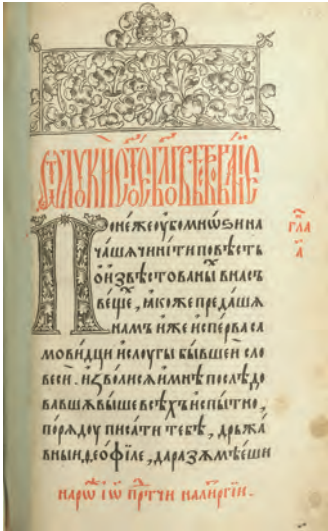 Ѿ лꙋки ст҃ое бл҃говѣствованїе
гла
а҃
Понеже оубо мноѕи на
чашѧ чинити повѣсть
о изъвѣстованныⷯ в насъ
веще, ꙗкоже предашѧ
намъ иже исперва са
мовидци и слоугы бывшеи сло
веси. изволисѧ и мнѣ послѣдо
вавшꙋ выше всѣхъ испытно,
порѧдоу писати тебѣ, држа
вныи ѳеофіле, да разꙋмѣеши
на рѡⷤ іѡ҃ прⷣтчи на литⷬгіи.